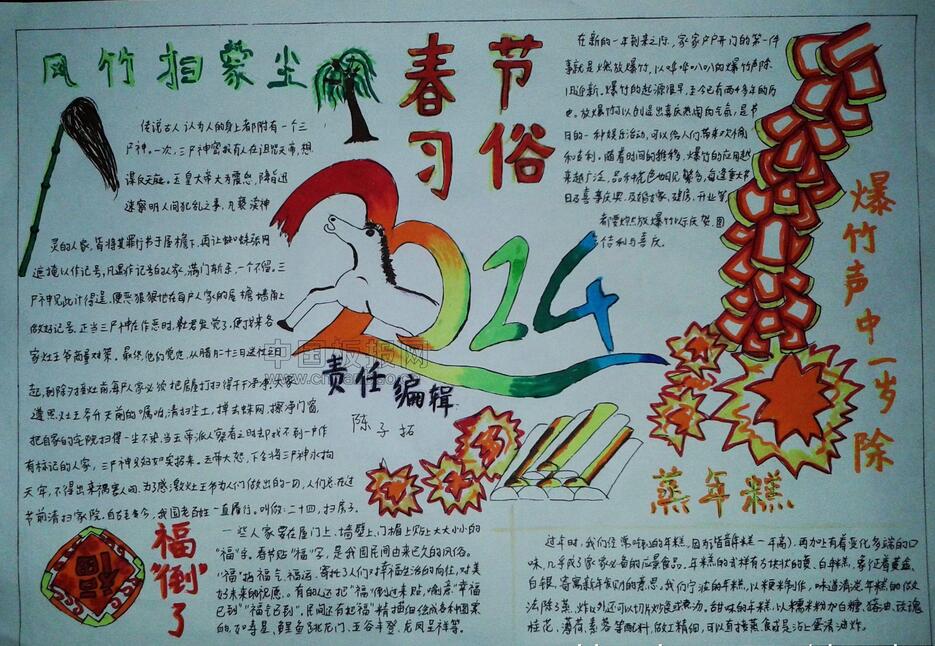 风竹扫蒙尘
春节
习俗
传说古人认为人的身上都附有一个三
尸神。一次,三尸神密报有人在诅咒天帝,想
谋反天庭。玉皇大帝大为震怒,降旨迅
速察明人间犯乱之事,凡亵渎神
灵的人家,皆将其罪行书于屋檐下,再让蜘蛛张网
遮掩以作记号,凡遇作记号的人家,满门斩杀,一个不留。三
尸神见此计得逞,便恶狠狠地在每户人家的屋檐墙角上
做好记号。正当三尸神在作恶时,
家灶王爷商量对策。最终,他们觉定,从腊月二十三日送灶之日
起,到除夕接灶前,每户人家必须把房屋打扫得干干净净,大家
遵照灶王爷升天前的嘱咐,清扫尘土,掸去蛛网,擦净门窗,
把自家的宅院扫得一尘不染。当王帝派人察看之时却找不到一户作
有标记的人家,三尸神只好如实招来。玉帝大怒,下令将三尸神永拘
天牢,不得出来祸害人间。为了感激灶王爷为人们做出的一切,人们总在过
节前清扫家院。自古至今,我国老百姓一直履行。叫做:二十四,扫房子。
在新的一年到来之际,家家户户开门的第一件
事就是燃放爆竹,以哔哔叭叭的爆竹声除
旧迎新。爆竹的起源很早,至今已有两千多年的历
史。放爆竹可以创造出喜庆热闹的气氛,是节
日的一种娱乐活动,可以给人们带来欢愉
和吉利。随着时间的推移,爆竹的应用越
来越广泛,品种花色也日见繁多,每逢重大节
日及喜事庆典,及婚嫁、建房、开业等
都要燃放爆竹以示庆贺,图
吉利与喜庆。
爆竹声中一岁除
2024
中国板报网
责任编辑
陈子拓
蒸年糕
福"倒"了
福
一些人家要在屋门上、墙壁上、门楣上贴上大大小小的
"福"字。春节贴"福"字,是我国民间由来已久的风俗。
"福"指福气、福运,寄托了人们对幸福生活的向往,对美
好未来的祝愿。有的人还把"福"倒过来贴,喻意"幸福
已到""福气已到"。民间还有把"福"精描细绘成各种图案
的,如寿星、鲤鱼跳龙门、五谷丰登、龙凤呈祥等。
过年时,我们经常吃到的年糕,因为谐音年糕(一年高),再加上有着变化多端的口
味,几乎成了家家必备的应景食品。年糕的式样有方块状的黄、白年糕,象征着黄金、
白银,寄寓新年发财的意思。我们宁波的年糕,以粳米制作,味道清淡。年糕的做
法除了蒸、炸以外还可以切片炒或煮汤。甜味的年糕,以糯米粉加白糖、猪油、玫瑰、
桂花、薄荷、素蓉等配料,做工精细,可以直接蒸食或是沾上蛋清油炸。